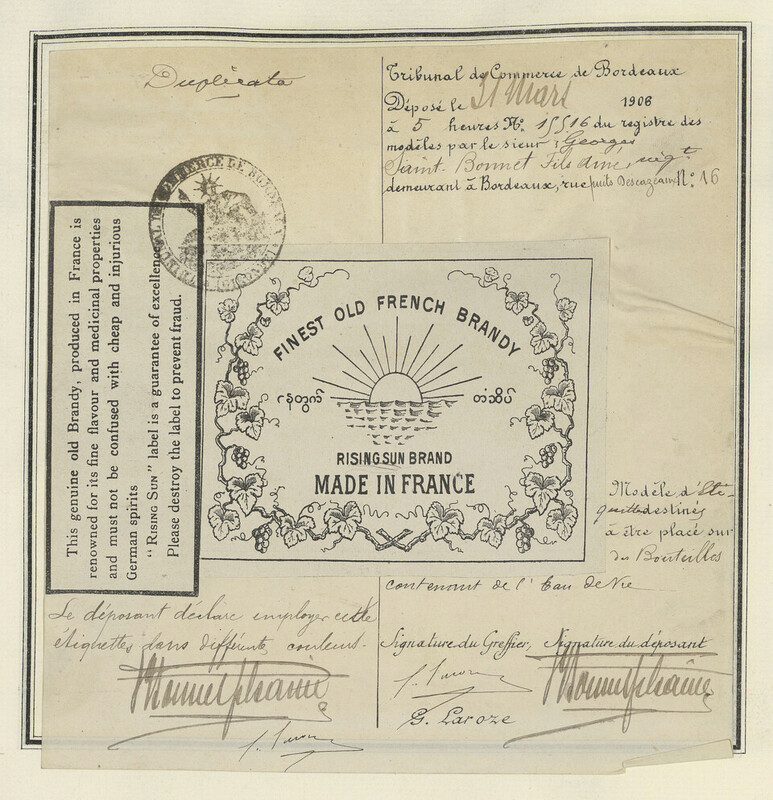 Duplicata
Tribunal de Commerce de Bordeaux
Déposé le 31 Mars 1906
à 5 heures No. 15516 du registre des
modèles par le sieur Georges
Saint-Bonnet Fils ainé, négt
demeurant à Bordeaux, rue puits Descazeaux No. 16
This genuine old Brandy, produced in France is
renowned for its fine flavour and medicinal properties
and must not be confused with cheap and injurious
German spirits
"RISING SUN" label is a guarantee of excellence
Please destroy the label to prevent fraud.
FINEST OLD FRENCH BRANDY
တံဆိပ်
RISING SUN BRAND
MADE IN FRANCE
Modèle d'Eti-
quettes destinés
à être placé sur
des Bouteilles
contenant de l'Eau de Vie
Le déposant déclare employer cette
étiquettes dans différents couleurs.
Signature du Greffier, Signature du déposant
G. Laroze